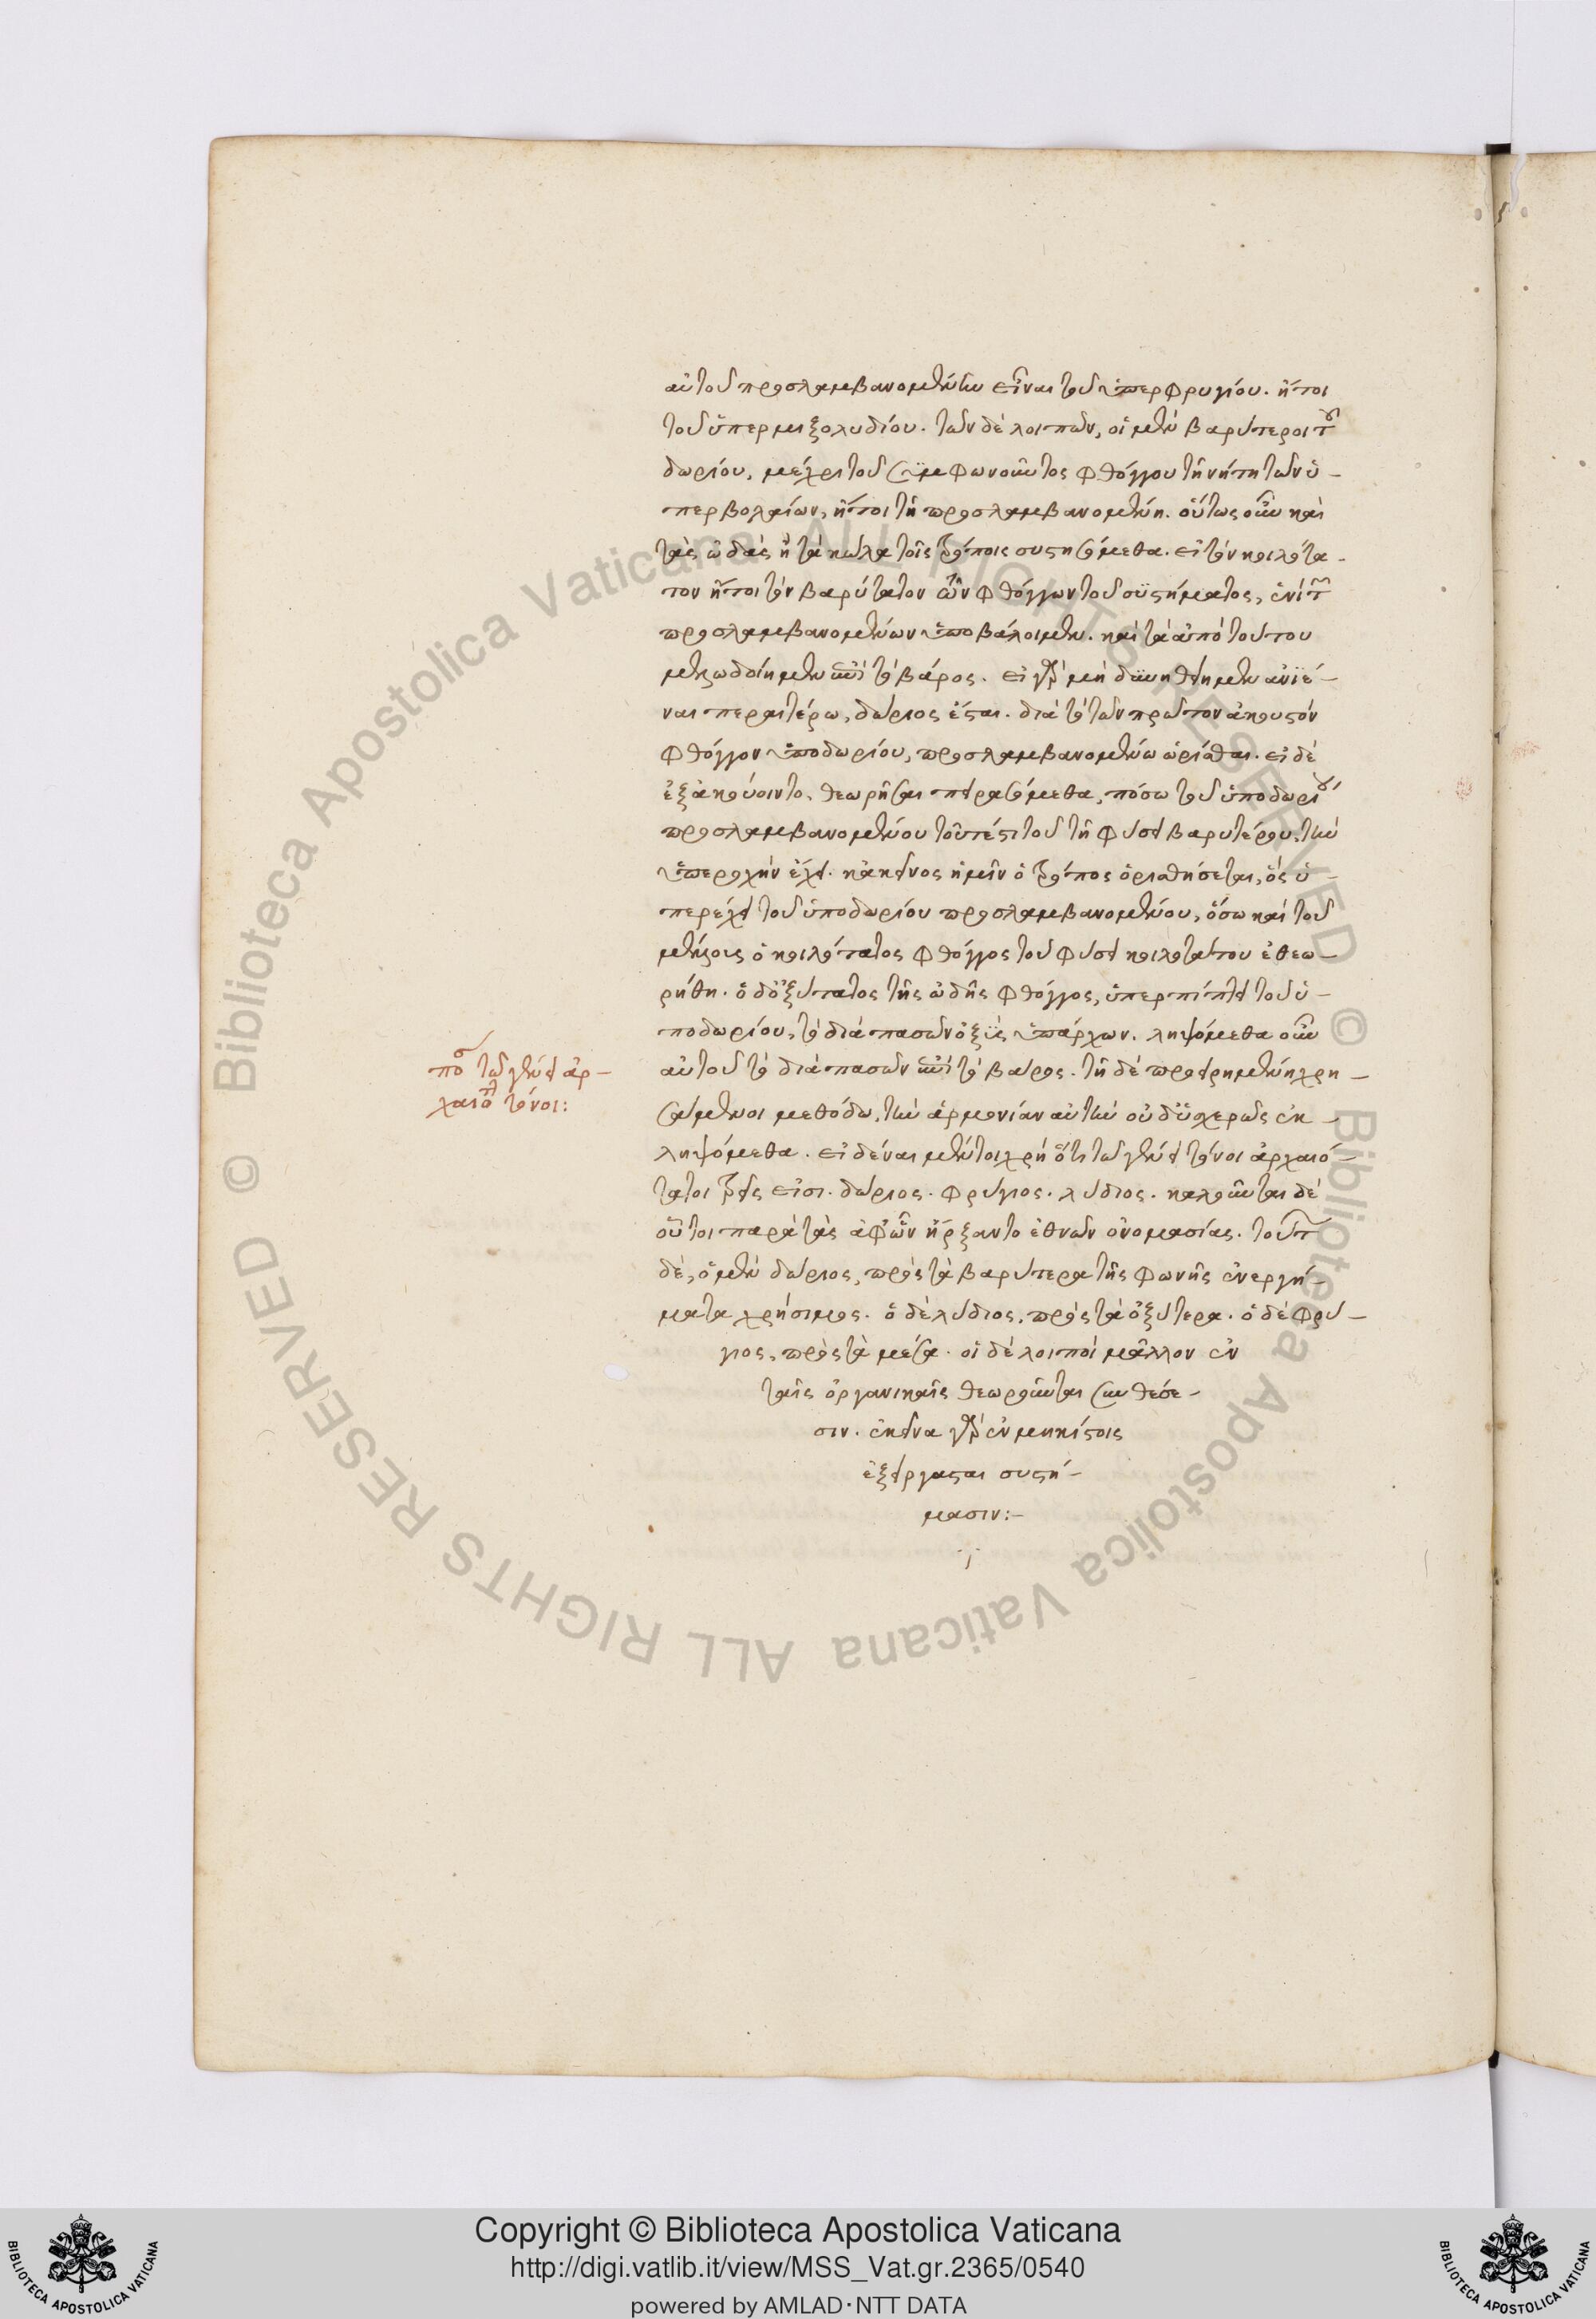 αὐτοῦ προσλαμβανομένην εἶναι τοῦ ὑπερφρυγίου. ἤτοι
τοῦ ὑπερμιξολυδίου. τῶν δὲ λοιπῶν, οἱ μὲν βαρύτεροι τοῦ
δωρίου, μέχρι τοῦ συμφωνοῦντος φθόγγου τῇ νήτη τῶν ὑ-
περβολαίων, ἤτοι τῇ προσλαμβανομένη. οὕτως οὖν καὶ
τὰς ὠδὰς ἢ τὰ κῶλα τοῖς τρόποις συστησόμεθα. εἰ τὸν κοιλότα-
τον ἤτοι τὸν βαρύτατον τῶν φθόγγων τοῦ συστήματος, ἑνὶ τῶν
προσλαμβανομένων ὑποβάλοιμεν. καὶ τὰ ἀπὸ τούτου
μελωδοίημεν ἐπὶ τὸ βάρος. εἰ γὰρ μὴ δυνηθείημεν ἀνιέ-
ναι περαιτέρω, δώριος ἔσται. διὰ τὸ τῶν πρῶτον ἀκουστὸν
φθόγγον ὑποδωρίου, προσλαμβανομένω ὡρίσθαι. εἰ δὲ
ἐξακούοιντο. θεωρῆσαι πειρασόμεθα, πόσω τοῦ ὑποδωρίου
προσλαμβανομένου τουτέστι τοῦ τῇ φύσει βαρυτέρου, τὴν
ὑπεροχὴν ἔχει. κἀκεῖνος ἡμῖν ὁ τρόπος ὁρισθήσεται, ὃς ὑ-
περέχει τοῦ ὑποδωρίου προσλαμβανομένου, ὅσω καὶ τοῦ
μέλους ὁ κοιλότατος φθόγγος τοῦ φύσει κοιλοτάτου ἐθεω-
ρήθη. ὁ δ' ὀξύτατος τῆς ὠδῆς φθόγγος, ὑπερπίπτει τοῦ ὑ-
ποδωρίου, τὸ διὰ πασῶν ὀξὺς ὑπάρχων. ληψόμεθα οὖν
αὐτοῦ τὸ διὰ πασῶν ἐπὶ τὸ βάρος. τῇ δὲ προειρημένη χρη-
σάμενοι μεθόδω, τὴν ἁρμονίαν αὐτὴν οὐ δυσχερῶς ἐκ-
ληψόμεθα. εἰδέναι μέντοι χρὴ ὅτι τῶ γένει τόνοι ἀρχαιό-
τατοι τρεῖς εἰσι. δώριος. φρύγιος. λύδιος. καλοῦνται δὲ
οὗτοι παρὰ τὰς ἀφ' ὧν ἤρξαντο ἐθνῶν ὀνομασίας. τούτων
δὲ, ὁ μὲν δώριος, πρὸς τὰ βαρύτερα τῆς φωνῆς ἐνεργή-
ματα χρήσιμος. ὁ δὲ λύδιος, πρὸς τὰ ὀξύτερα. ὁ δὲ φρύ-
γιος, πρὸς τὰ μέσα. οἱ δὲ λοιποὶ μᾶλλον ἐν
ταῖς ὀργανικαῖς θεωροῦνται συνθέσε-
σιν. ἐκεῖνα γὰρ ἐν μηκίστοις
ἐξείργασται συστή-
μασιν:-
πόσοι τῶ γένει ἀρ-
χαιότατοι τόνοι:
Copyright © Biblioteca Apostolica Vaticana
http://digi.vatlib.it/view/MSS_Vat.gr.2365/0540
powered by AMLAD·NTT DATA
BIBLIOTECA APOSTOLICA VATICANA
BIBLIOTECA APOSTOLICA VATICANA
© Biblioteca Apostolica Vaticana ALL RIGHTS RESERVED © Biblioteca Apostolica Vaticana ALL RIGHTS RESERVED